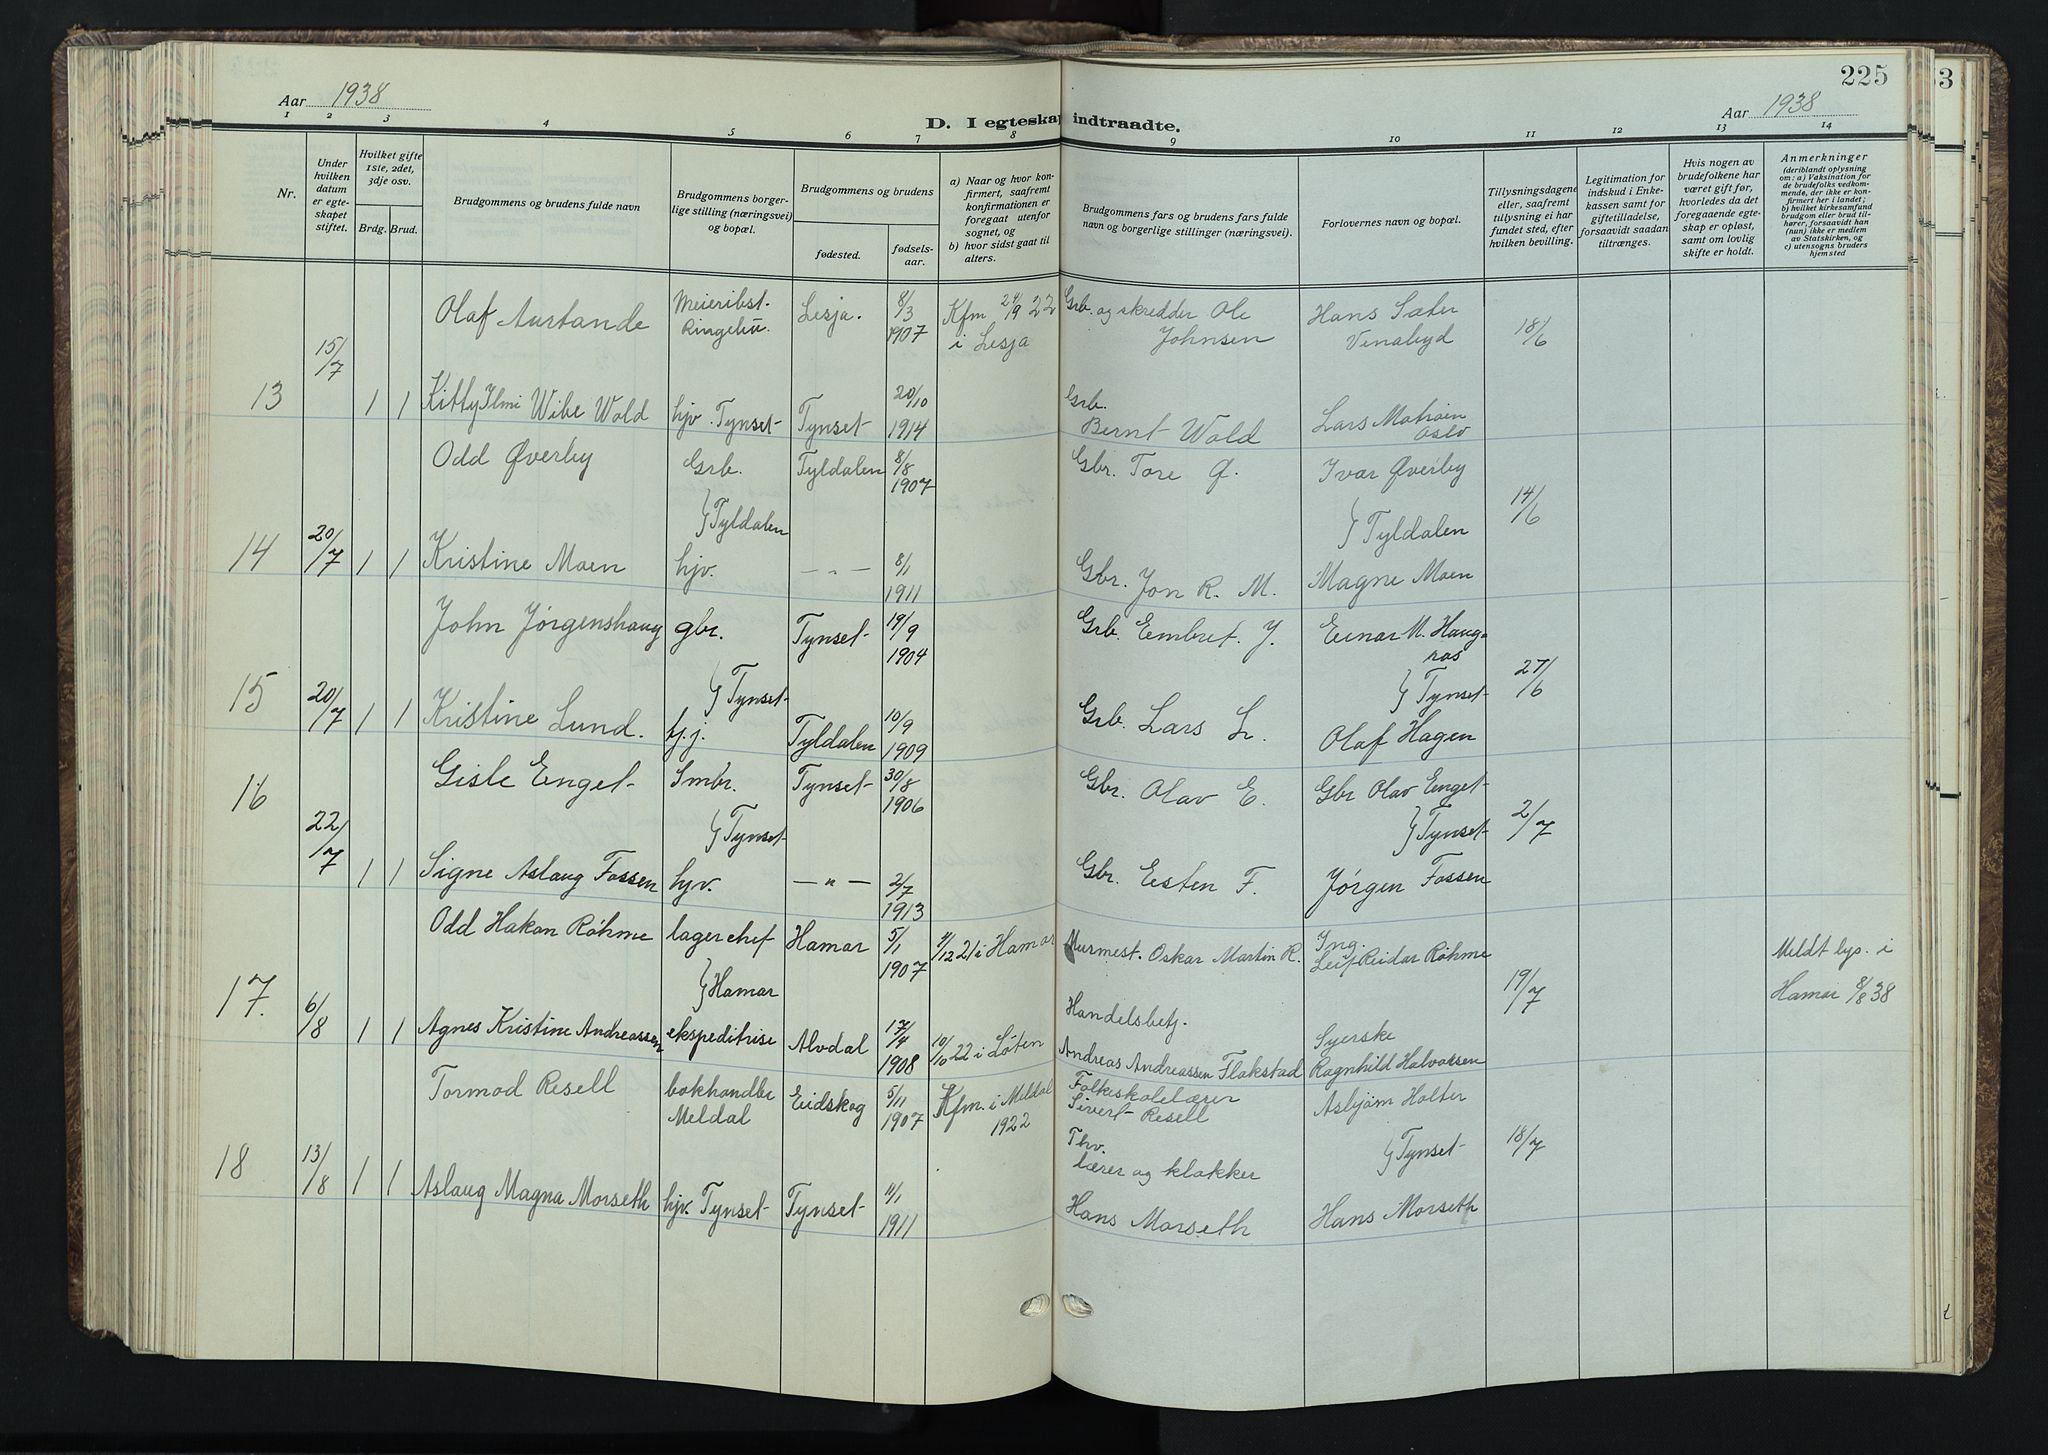 225
3
Aar 1938
Aar 1938
D. I egteskap indtraadte.
1 2 3 4 5 6 7 8 9 10 11 12 13 14
Nr.
Under hvilken datum er egteskapet stiftet.
Hvilket gifte 1ste, 2det, 3dje osv.
Brdg. Brud.
Brudgommens og brudens fulde navn
Brudgommens borgerlige stilling (næringsvei) og bopæl.
Brudgommens og brudens
fødested.
fødselsaar.
a) Naar og hvor konfirmert, saafremt konfirmationen er foregaat utenfor sognet, og
b) hvor sidst gaat til alters.
Brudgommens fars og brudens fars fulde navn og borgerlige stillinger (næringsvei).
Forlovernes navn og bopæl.
Tillysningsdagene eller, saafremt tillysning ei har fundet sted, efter hvilken bevilling.
Legitimation for indskud i Enkekassen samt for giftetilladelse, forsaavidt saadan tiltrænges.
Hvis nogen av brudefolkene har været gift før, hvorledes da det foregaaende egteskap er opløst, samt om lovlig skifte er holdt.
Anmerkninger
(deriblandt oplysning om: a) Vaksination for de brudefolks vedkommende, der ikke er konfirmert her i landet;
b) hvilket kirkesamfund brudgom eller brud tilhører, forsaavidt han (hun) ikke er medlem av Statskirken, og
c) utensogns bruders hjemsted
Olaf Aurtande Meieribst. Ringebu. Lesja. 8/3 1907 Kfm 24/9 22 i Lesja Grb. og skredder Ole Johnsen Hans Sæter Venabyd 18/6
13 15/7 1 1 Kitty Ilmi Wibe Wold hjv. Tynset Tynset 20/10 1914 Grb. Bernt Wold Lars Oslo
Odd Øverby Grb. Tyldalen 8/8 1907 Gbr. Tore Ø. Ivar Øverby
} Tyldalen } Tyldalen 14/6
14 20/7 1 1 Kristine Moen hjv. — " — 8/1 1911 Gbr. Jon R. M. Magne Moen
John Jørgenshaug gbr. Tynset 19/9 1904 Grb. Embret. J. Einar M. Haugras
} Tynset } Tynset 27/6
15 20/7 1 1 Kristine Lund. hj. Tyldalen 10/9 1909 Grb. Lars L. Olaf Hagen
16 Gisle Enget Smbr. Tynset 30/8 1906 Gbr. Olav E. Gbr Olav Enget
} Tynset } Tynset 2/7
22/7 1 1 Signe Aslaug Fossen hjv. — " — 2/7 1913 Gbr. Eisten F. Jørgen Fossen
Odd Hakon Røhme lagerchef Hamar 5/1 1907 4/12 21 i Hamar Murmest. Oskar Martin R. Ing. Leif Reidar Røhme Meldt lys. i Hamar 8/8 38
} Hamar 19/7
17. 6/8 1 1 Agnes Kristine Andreassen ekspeditrise Alvdal 17/4 1908 10/10 22 i Løten Handelsbetj. Andreas Andreassen Flakstad Syerske Ragnhild Halvorsen
Tormod Resell bokhandler Meldal Eidskog 5/11 1907 Kfm. i Meldal 1922 Folkeskolelærer Sivert Resell Asbjørn Holter
} Tynset 18/7
18 13/8 1 1 Aslaug Magna Morseth hjv. Tynset Tynset 4/1 1911 Fhv. lærer og klokker Hans Morseth Hans Morseth